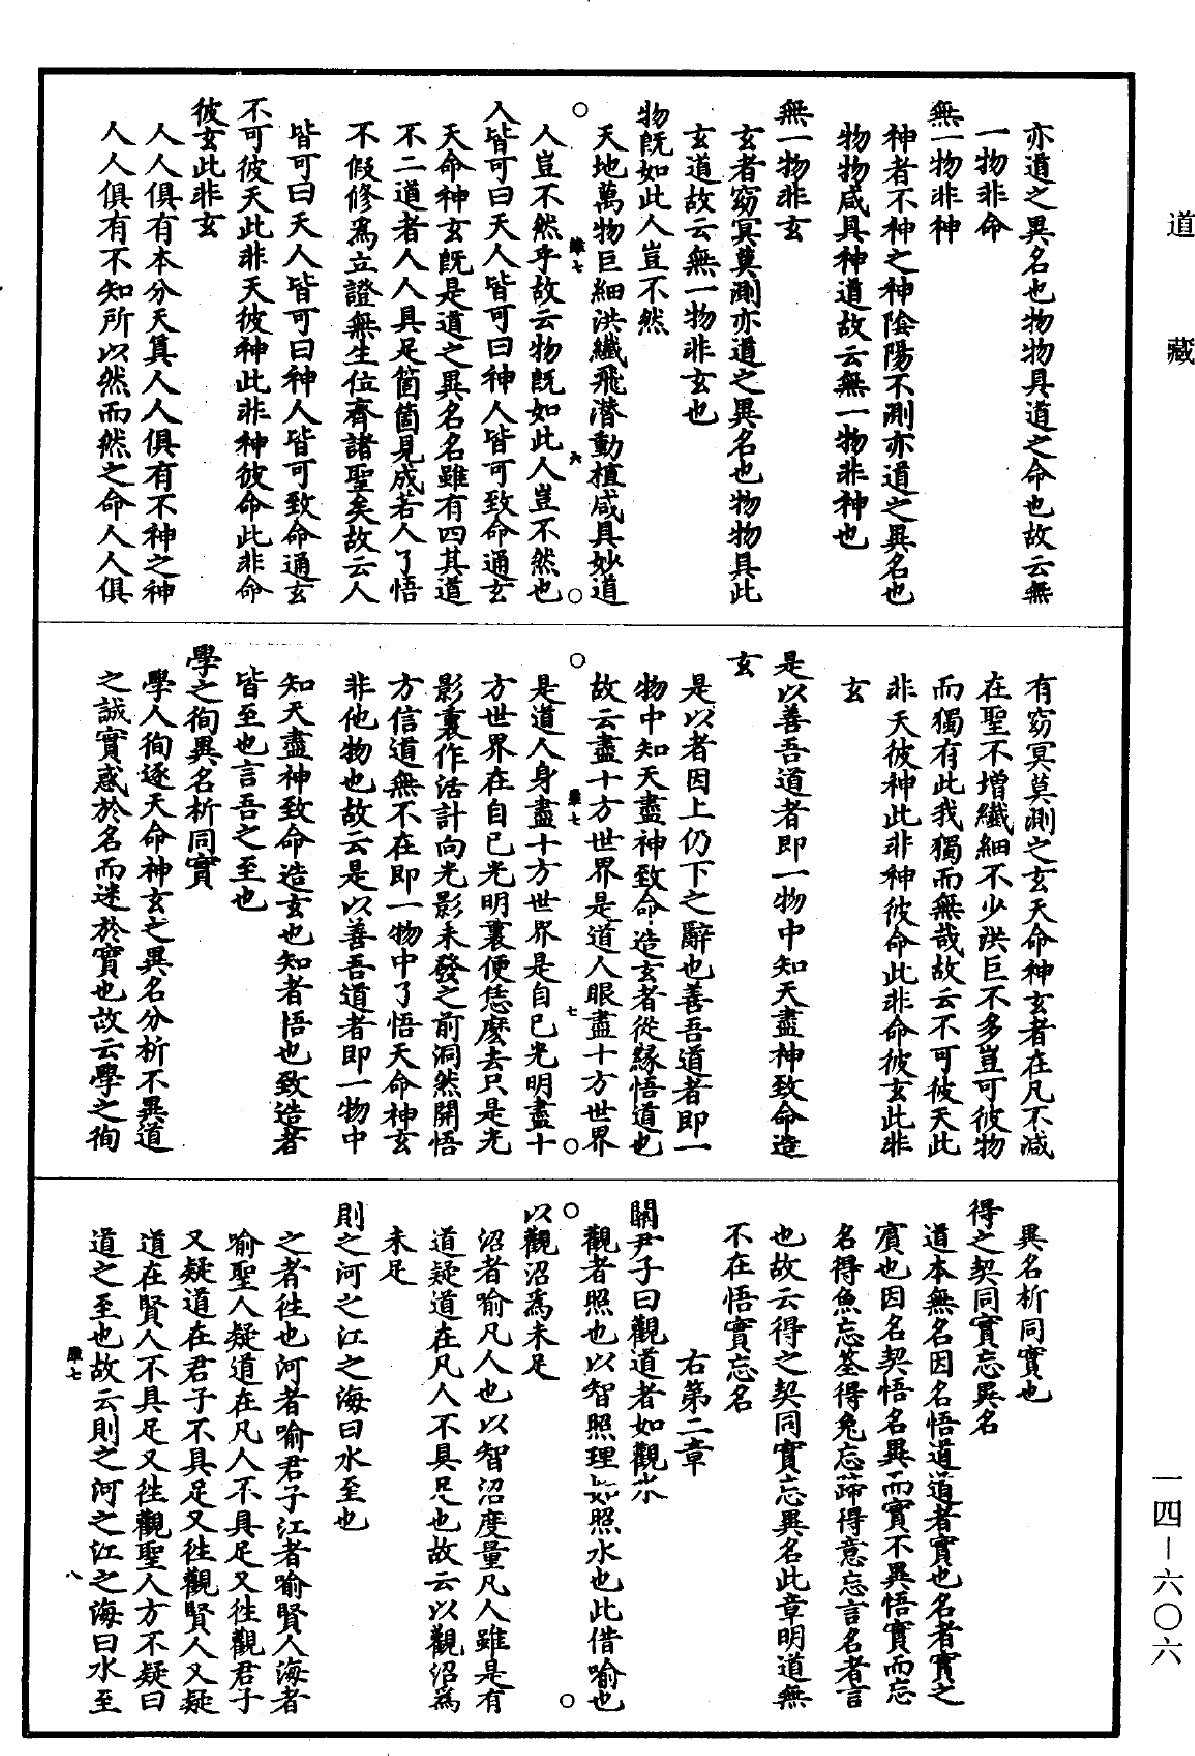 道藏
亦道之異名也物物具道之命也故云無
一物非命
無一物非神
神者不神之神陰陽不測亦道之異名也
物物咸具神道故云無一物非神也
無一物非玄
玄者窈冥莫測亦道之異名也物物具此
玄道故云無一物非玄也
物旣如此人豈不然
天地萬物巨細洪纖飛潛動植咸具妙道
人豈不然乎故云物旣如此人豈不然也
人皆可曰天人皆可曰神人皆可致命通玄
天命神玄旣是道之異名名雖有四其道
不二道者人人具足箇箇見成若人了悟
不假修爲立證無生位齊諸聖矣故云人
皆可曰天人皆可曰神人皆可致命通玄
不可彼天此非天彼神此非神彼命此非命
彼玄此非玄
人人俱有本分天真人人俱有不神之神
人人俱有不知所以然而然之命人人俱
有窈冥莫測之玄天命神玄者在凡不減
在聖不增纖細不少洪巨不多豈可彼物
而獨有此我獨而無哉故云不可彼天此
非天彼神此非神彼命此非命彼玄此非
玄
是以善吾道者即一物中知天盡神致命造
玄
是以者因上仍下之辭也善吾道者即一
物中知天盡神致命造玄者從緣悟道也
故云盡十方世界是道人眼盡十方世界
是道人身盡十方世界是自己光明盡十
方世界在自己光明裏便恁麽去只是光
影裏作活計向光影未發之前洞然開悟
方信道無不在即一物中了悟天命神玄
非他物也故云是以善吾道者即一物中
知天盡神致命造玄也知者悟也致造者
皆至也言吾之至也
學之徇異名析同實
學人徇逐天命神玄之異名分析不異道
之誠實惑於名而迷於實也故云學之徇
異名析同實也
得之契同實忘異名
道本無名因名悟道道者實也名者實之
賓也因名契悟名異而實不異悟實而忘
名得魚忘筌得兔忘蹄得意忘言名者言
也故云得之契同實忘異名此章明道無
不在悟實忘名
右第二章
關尹子曰觀道者如觀水
觀者照也以智照理如照水也此借喻也
以觀沼爲未足
沼者喻凡人也以智沼度量凡人雖是有
道疑道在凡人不具足也故云以觀沼爲
未足
則之河之江之海曰水至也
之者往也河者喻君子江者喻賢人海者
喻聖人疑道在凡人不具足又往觀君子
又疑道在君子不具足又往觀賢人又疑
道在賢人不具足又往觀聖人方不疑曰
道之至也故云則之河之江之海曰水至
一四－六〇六